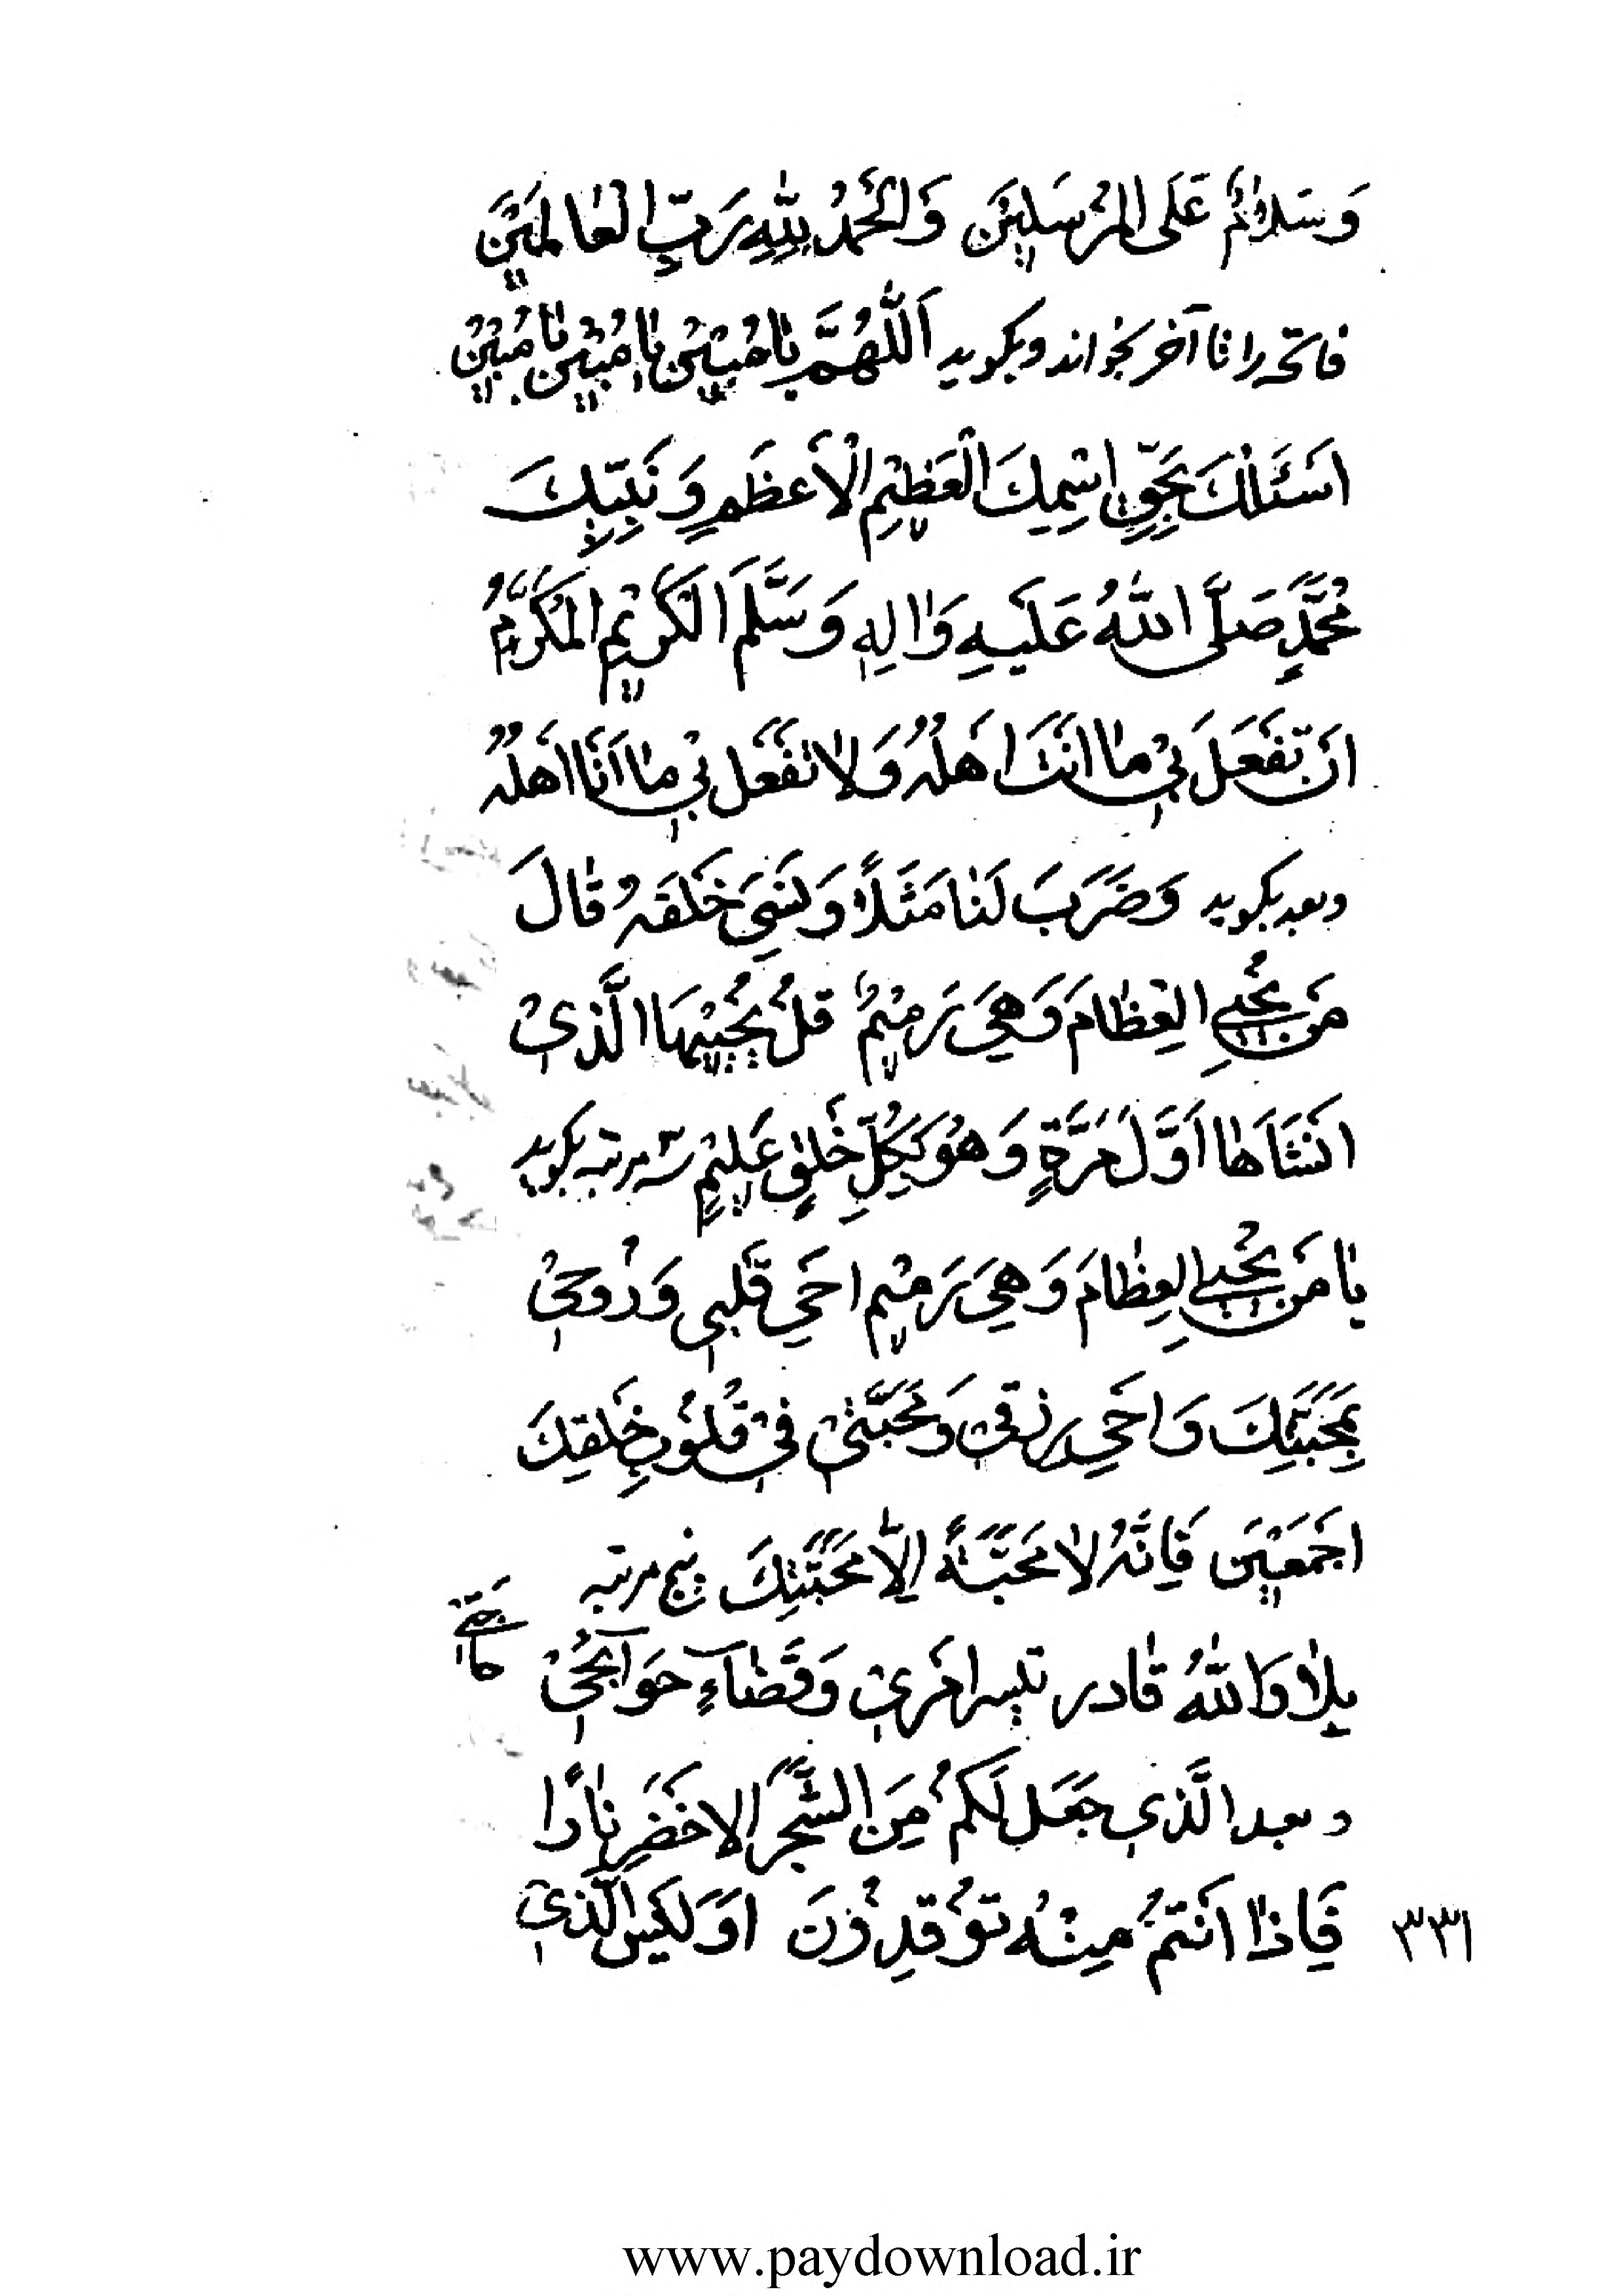 وَسَلاٰمٌ عَلَی الْمُرْسَلِیْنَ وَالْحَمْدُ لِلّٰهِ رَبِّ الْعٰالَمِیْنَ
فاتحه را تا آخر بخواند و بگوید اَللّٰهُمَّ یٰا مُبِیْنُ یٰا مُبِیْنُ یٰا مُبِیْنُ
اَسْئَلُكَ بِحَقِّ اسْمِكَ الْعَظِیْمِ الْاَعْظَمِ وَ نَبِیِّكَ
مُحَمَّدٍ صَلَّی اللّٰهُ عَلَیْهِ وَاٰلِهِ وَسَلَّمَ الْكَرِیْمِ الْمُكَرَّمِ
اَنْ تَفْعَلَ بِیْ مٰا اَنْتَ اَهْلُهُ وَلاٰ تَفْعَلْ بِیْ مٰا اَنَا اَهْلُهُ
وبعد بگوید وَضَرَبَ لَنٰا مَثَلاً وَنَسِیَ خَلْقَهُ قٰالَ
مَنْ یُحْیِی الْعِظٰامَ وَهِیَ رَمِیْمٌ قُلْ یُحْیِیْهَا الَّذِیْ
اَنْشَاَهٰا اَوَّلَ مَرَّةٍ وَهُوَ بِكُلِّ خَلْقٍ عَلِیْمٌ سه مرتبه بگوید
یٰا مَنْ یُحْیِی الْعِظٰامَ وَهِیَ رَمِیْم اَحْیِ قَلْبِی وَرُوحِیْ
بِمَحَبَّتِكَ وَاَحْیِ رزقی وَمَحَبَّتِیْ فِیْ قُلُوْبِ خَلْقِكَ
اَجْمَعِیْنَ فَاِنَّهُ لاٰ مَحَبَّةَ اِلاّٰ مَحَبَّتِكَ پنج مرتبه
یلاٰ وَاللّٰهُ قٰادر تیسر اَمْرِیْ وَقَضٰاءِ حَوَآئِجُیْ
حٰاجَتِیْ
وبعد الَّذِی جَعَلَ لَكُمْ مِنَ الشَّجَرِ الاَخْضَرِ نٰارًا
فَاِذٰا اَنْتُمْ مِنْهُ تُوْقِدُوْنَ اَوَلَیْسَ الَّذِیْ
۳۳۱
www.paydownload.ir